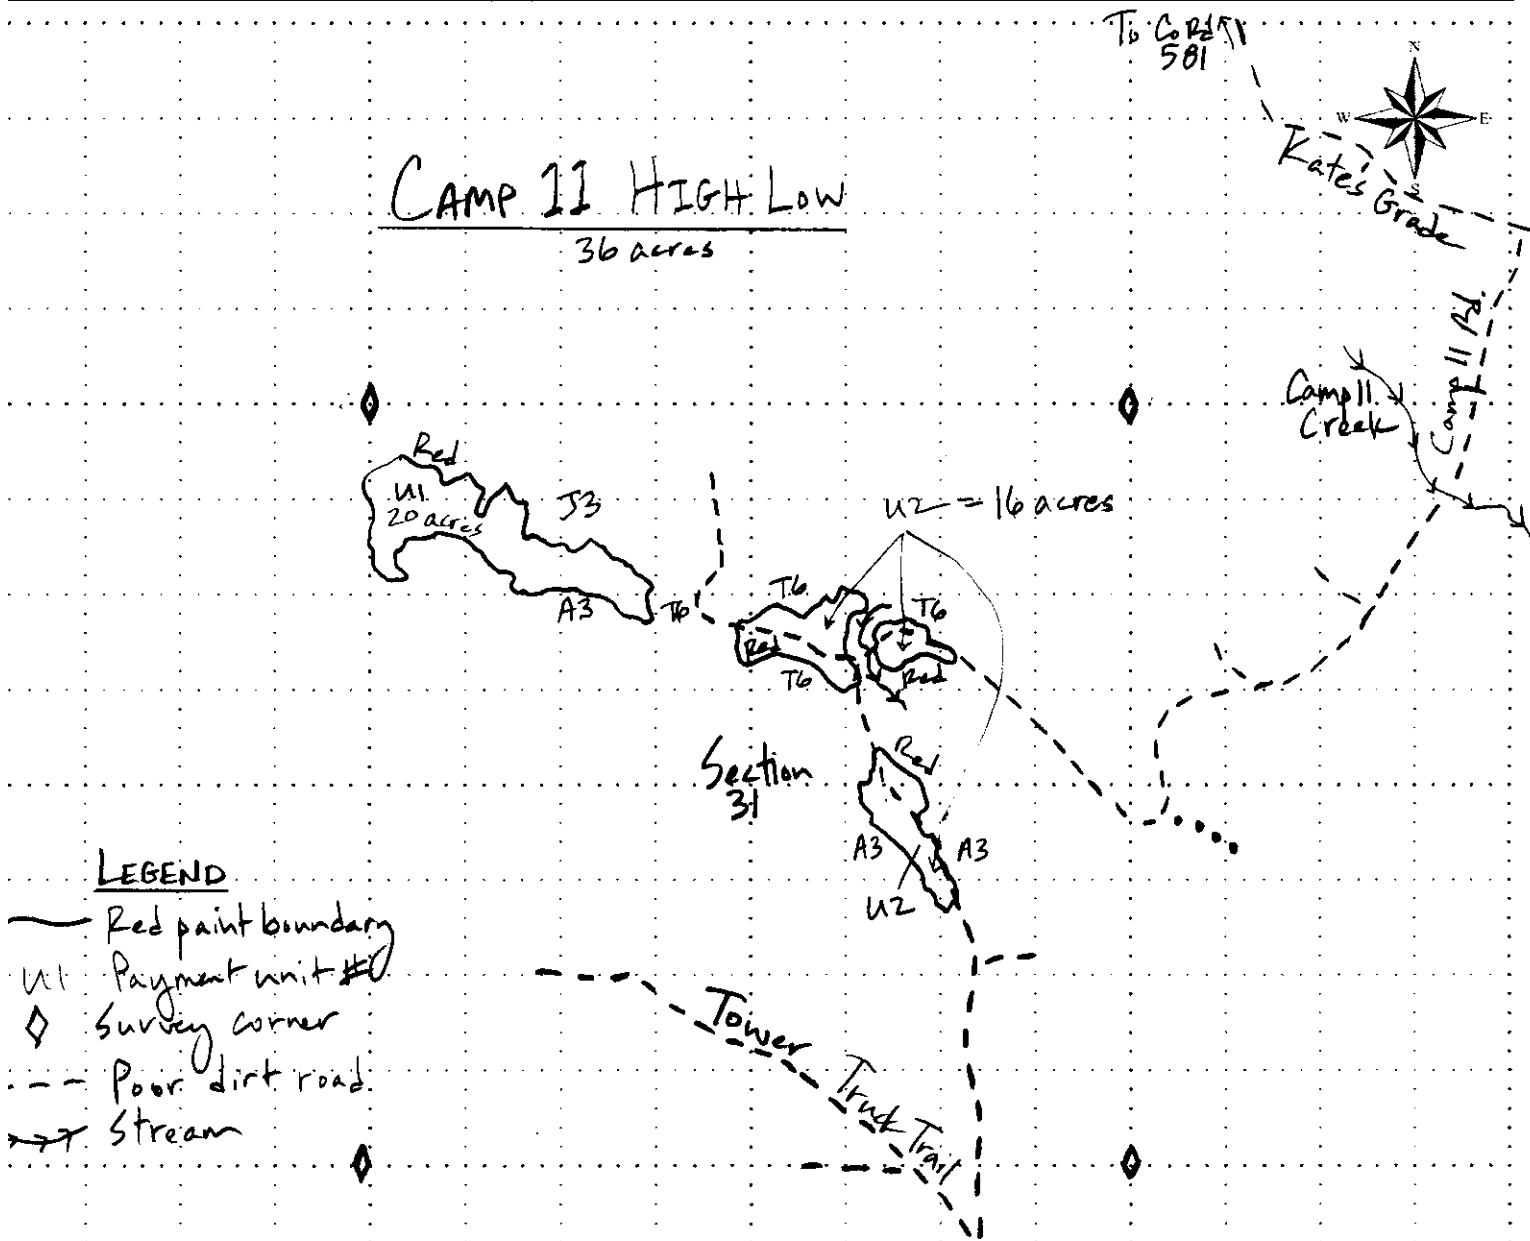 To Co Rd
581
N
W E
S
Kates Grade
CAMP 11 HIGH LOW
36 acres
Camp 11 Rd
Camp 11
Creek
Red
U1
20 acres
J3
A3
T6
U2 = 16 acres
T6
T6
Red
T6
Red
Section
31
Red
A3
A3
U2
LEGEND
Red paint boundary
U1 Payment unit #
Survey corner
Poor dirt road
Stream
Tower Truck Trail